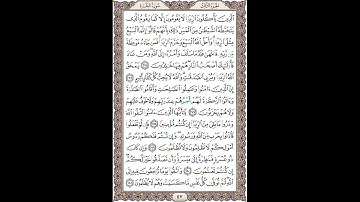 الجزء الثالث سورة البقرة
الَّذِينَ يَأْكُلُونَ الرِّبَوٰا لَا يَقُومُونَ إِلَّا كَمَا يَقُومُ الَّذِي
يَتَخَبَّطُهُ الشَّيْطَٰنُ مِنَ الْمَسِّ ذَٰلِكَ بِأَنَّهُمْ قَالُوا إِنَّمَا الْبَيْعُ
مِثْلُ الرِّبَوٰا وَأَحَلَّ اللَّهُ الْبَيْعَ وَحَرَّمَ الرِّبَوٰا فَمَن جَآءَهُ مَوْعِظَةٌ
مِّن رَّبِّهِ فَانتَهَىٰ فَلَهُ مَا سَلَفَ وَأَمْرُهُ إِلَى اللَّهِ وَمَنْ عَادَ
فَأُولَٰئِكَ أَصْحَٰبُ النَّارِ هُمْ فِيهَا خَٰلِدُونَ ٢٧٥ يَمْحَقُ
اللَّهُ الرِّبَوٰا وَيُرْبِي الصَّدَقَٰتِ وَاللَّهُ لَا يُحِبُّ كُلَّ كَفَّارٍ أَثِيمٍ ٢٧٦
إِنَّ الَّذِينَ ءَامَنُوا وَعَمِلُوا الصَّٰلِحَٰتِ وَأَقَامُوا الصَّلَوٰةَ
وَءَاتَوُا الزَّكَوٰةَ لَهُمْ أَجْرُهُمْ عِندَ رَبِّهِمْ وَلَا خَوْفٌ عَلَيْهِمْ
وَلَا هُمْ يَحْزَنُونَ ٢٧٧ يَٰأَيُّهَا الَّذِينَ ءَامَنُوا اتَّقُوا اللَّهَ
وَذَرُوا مَا بَقِيَ مِنَ الرِّبَوٰا إِن كُنتُم مُّؤْمِنِينَ ٢٧٨ فَإِن لَّمْ تَفْعَلُوا
فَأْذَنُوا بِحَرْبٍ مِّنَ اللَّهِ وَرَسُولِهِ وَإِن تُبْتُمْ فَلَكُمْ رُءُوسُ
أَمْوَٰلِكُمْ لَا تَظْلِمُونَ وَلَا تُظْلَمُونَ ٢٧٩ وَإِن كَانَ
ذُو عُسْرَةٍ فَنَظِرَةٌ إِلَىٰ مَيْسَرَةٍ وَأَن تَصَدَّقُوا خَيْرٌ لَّكُمْ
إِن كُنتُمْ تَعْلَمُونَ ٢٨٠ وَاتَّقُوا يَوْمًا تُرْجَعُونَ فِيهِ إِلَى
اللَّهِ ثُمَّ تُوَفَّىٰ كُلُّ نَفْسٍ مَّا كَسَبَتْ وَهُمْ لَا يُظْلَمُونَ ٢٨١
٤٧